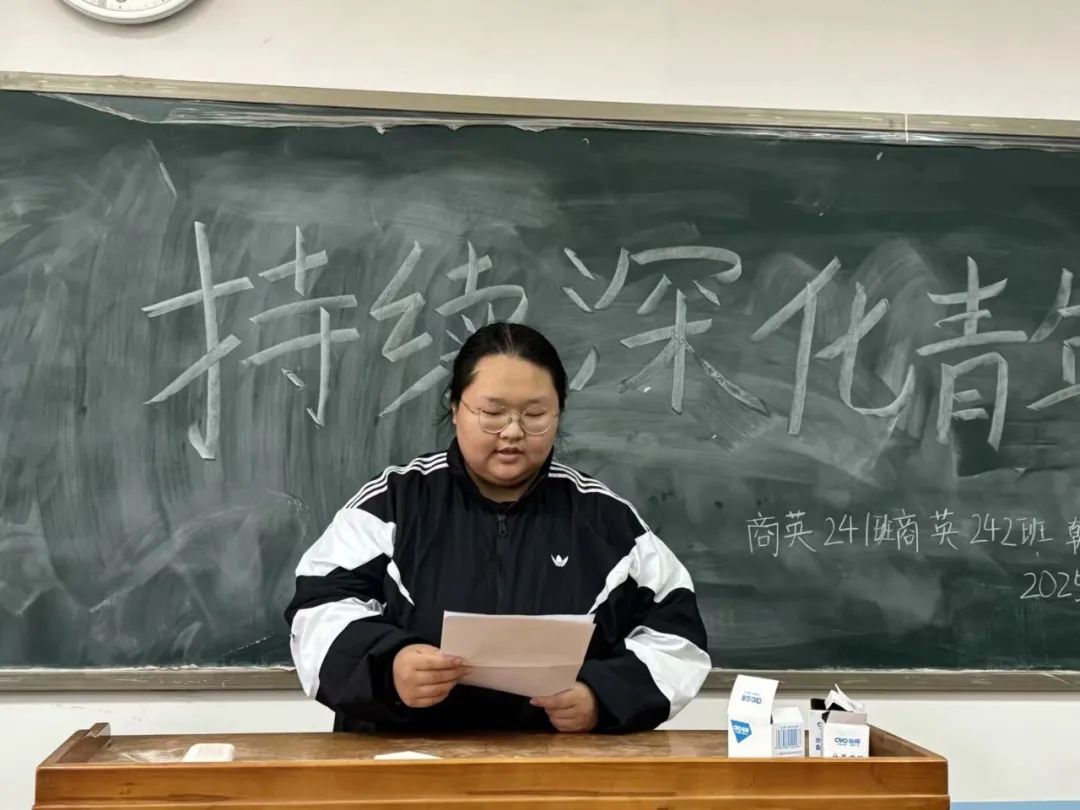 持续深化青年
商英241班商英242班 朝
2025